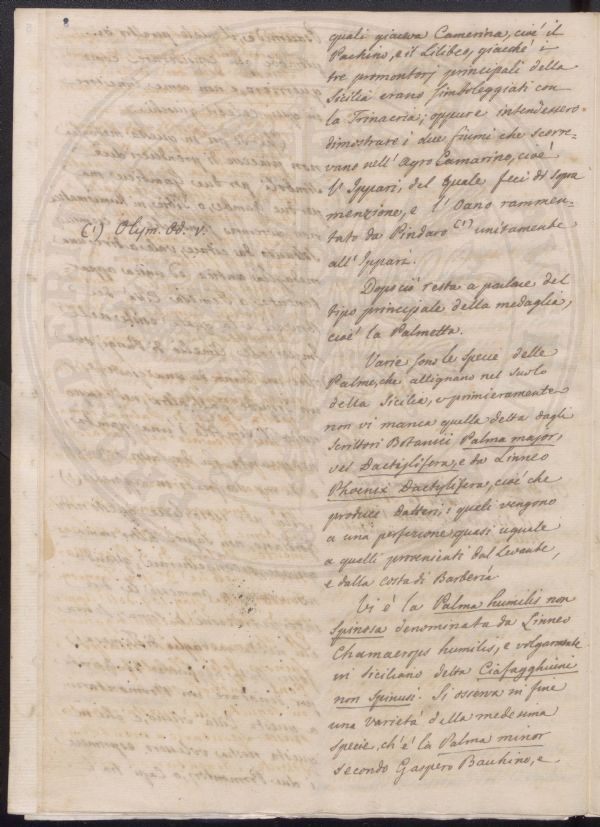 8
quali giaceva Camerina, cioé il
Pachino, e il Lilibeo, giacchè i
tre promontorj principali della
Sicilia erano simboleggiati con
la Trinacria; oppure intendessero
dimostrare i due fiumi che scorre=
vano nell' Agro Camarino, cioè
l' Ippari, del quale feci di sopra
menzione, e l' Oano rammen-
tato da Pindaro (1) unitamente
all' Ippari.
(1) Olym. Od. v.
Dopo ciò resta a parlare del
tipo principale della medaglia,
cioè la Palmetta.
Varie sono le specie delle
Palme, che allignano nel suolo
della Sicilia, e primieramente
non vi manca quella detta dagli
Scrittori Botanici Palma major,
vel Dactylifera, e da Linneo
Phoenix Dactylifera, cioè che
produce Datteri; i quali vengono
a una perfezione quasi uguale
a quelli provenienti dal Levante,
e dalla costa di Barberia.
Vi è la Palma humilis non
spinosa denominata da Linneo
Chamaerops humilis, e volgarmente
in Siciliano detta Ciafagghiuni
non spinusi. Si osserva in fine
una varietà della medesima
specie, ch'è la Palma minor
secondo Gaspero Bauhino, e